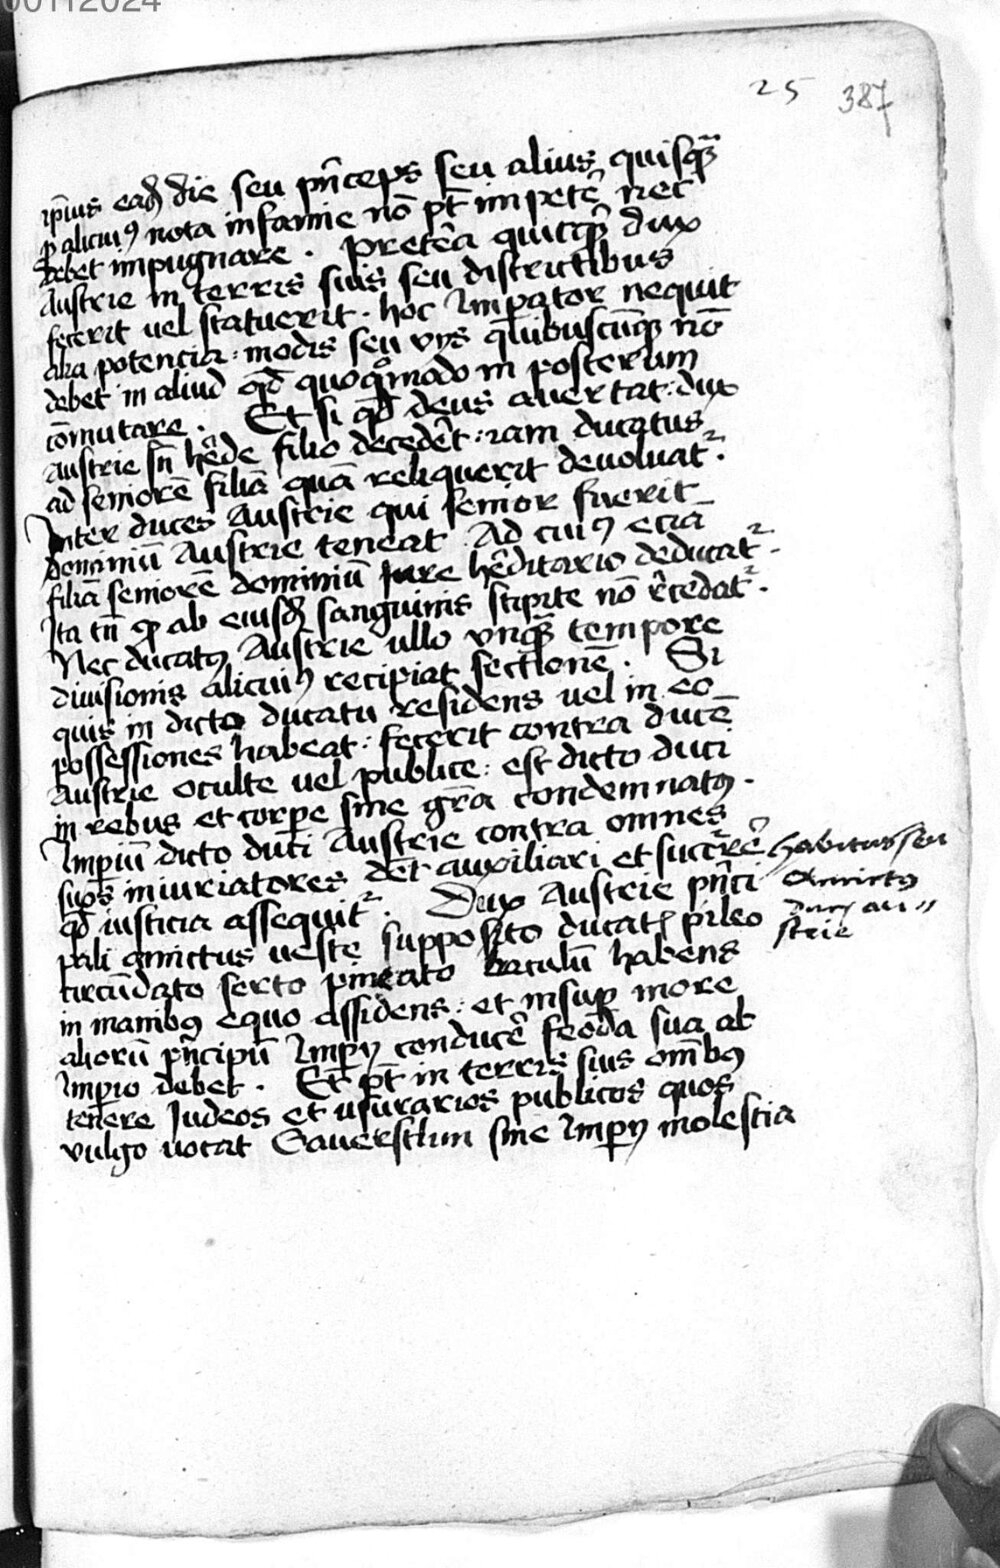 00112024
25 387
ip̄ius eadē die seu pn̄ceps seu alius quisq̄
ꝓ alicuiꝰ nota infamie nō pt̄ impetē nec
debet impugnare . Pretēa quicq̄ dux
Austrie in terris suis seu districtibus
fecerit uel statuerit . hoc Imꝑator nequit
alia potencia : modis seu vijs quibuscūq̄ nō
debet in aliud qd̄ quoq̄modo in posterum
cōmutare . Et si qd̄ deus auertat : dux
Austrie sn̄ hēde filio decedēt : iam ducatus
ad seniorē filiā quā reliquerit deuoluat᷑ .
Inter duces Austrie qui senior fuerit
dominiū Austrie teneat . Ad cuiꝰ eciā
filiā seniorē dominiū Jure hēditario deducat᷑ .
Ita tn̄ ꝙ ab eiusdē sanguinis stipite nō r̄cedat᷑ .
Nec ducatꝰ Austrie ullo vnq̄ tempore
diuisionis alicuiꝰ recipiat sectionē . Si
quis in dicto ducatu residens uel in eo
possessiones habeat : fecerit contra ducē
Austrie oculte uel publice : est dicto duci
in rebus et corꝑe sine grā condemnatꝰ .
Imꝑiū dicto duci Austrie contra omnes
suos iniuriatores det̄ auxiliari et succr̄rē
qd̄ iusticia assequit᷑ . Dux Austrie pn̄ci
pali amictus ueste supposito ducatꝭ pileo
circūdato serto pineato baculū habens
in manibꝰ equo assidens : et insuꝑ more
aliorū pn̄cipū Imꝑij conducē feoda sua ab
Imꝑio debet . Et pt̄ in terris suis om̄bꝰ
tenere Judeos et usurarios publicos quos
vulgo uocat Gauersthin sine Imꝑij molestia
Habitus seu
Amictꝰ
Ducꝭ au〃
strie